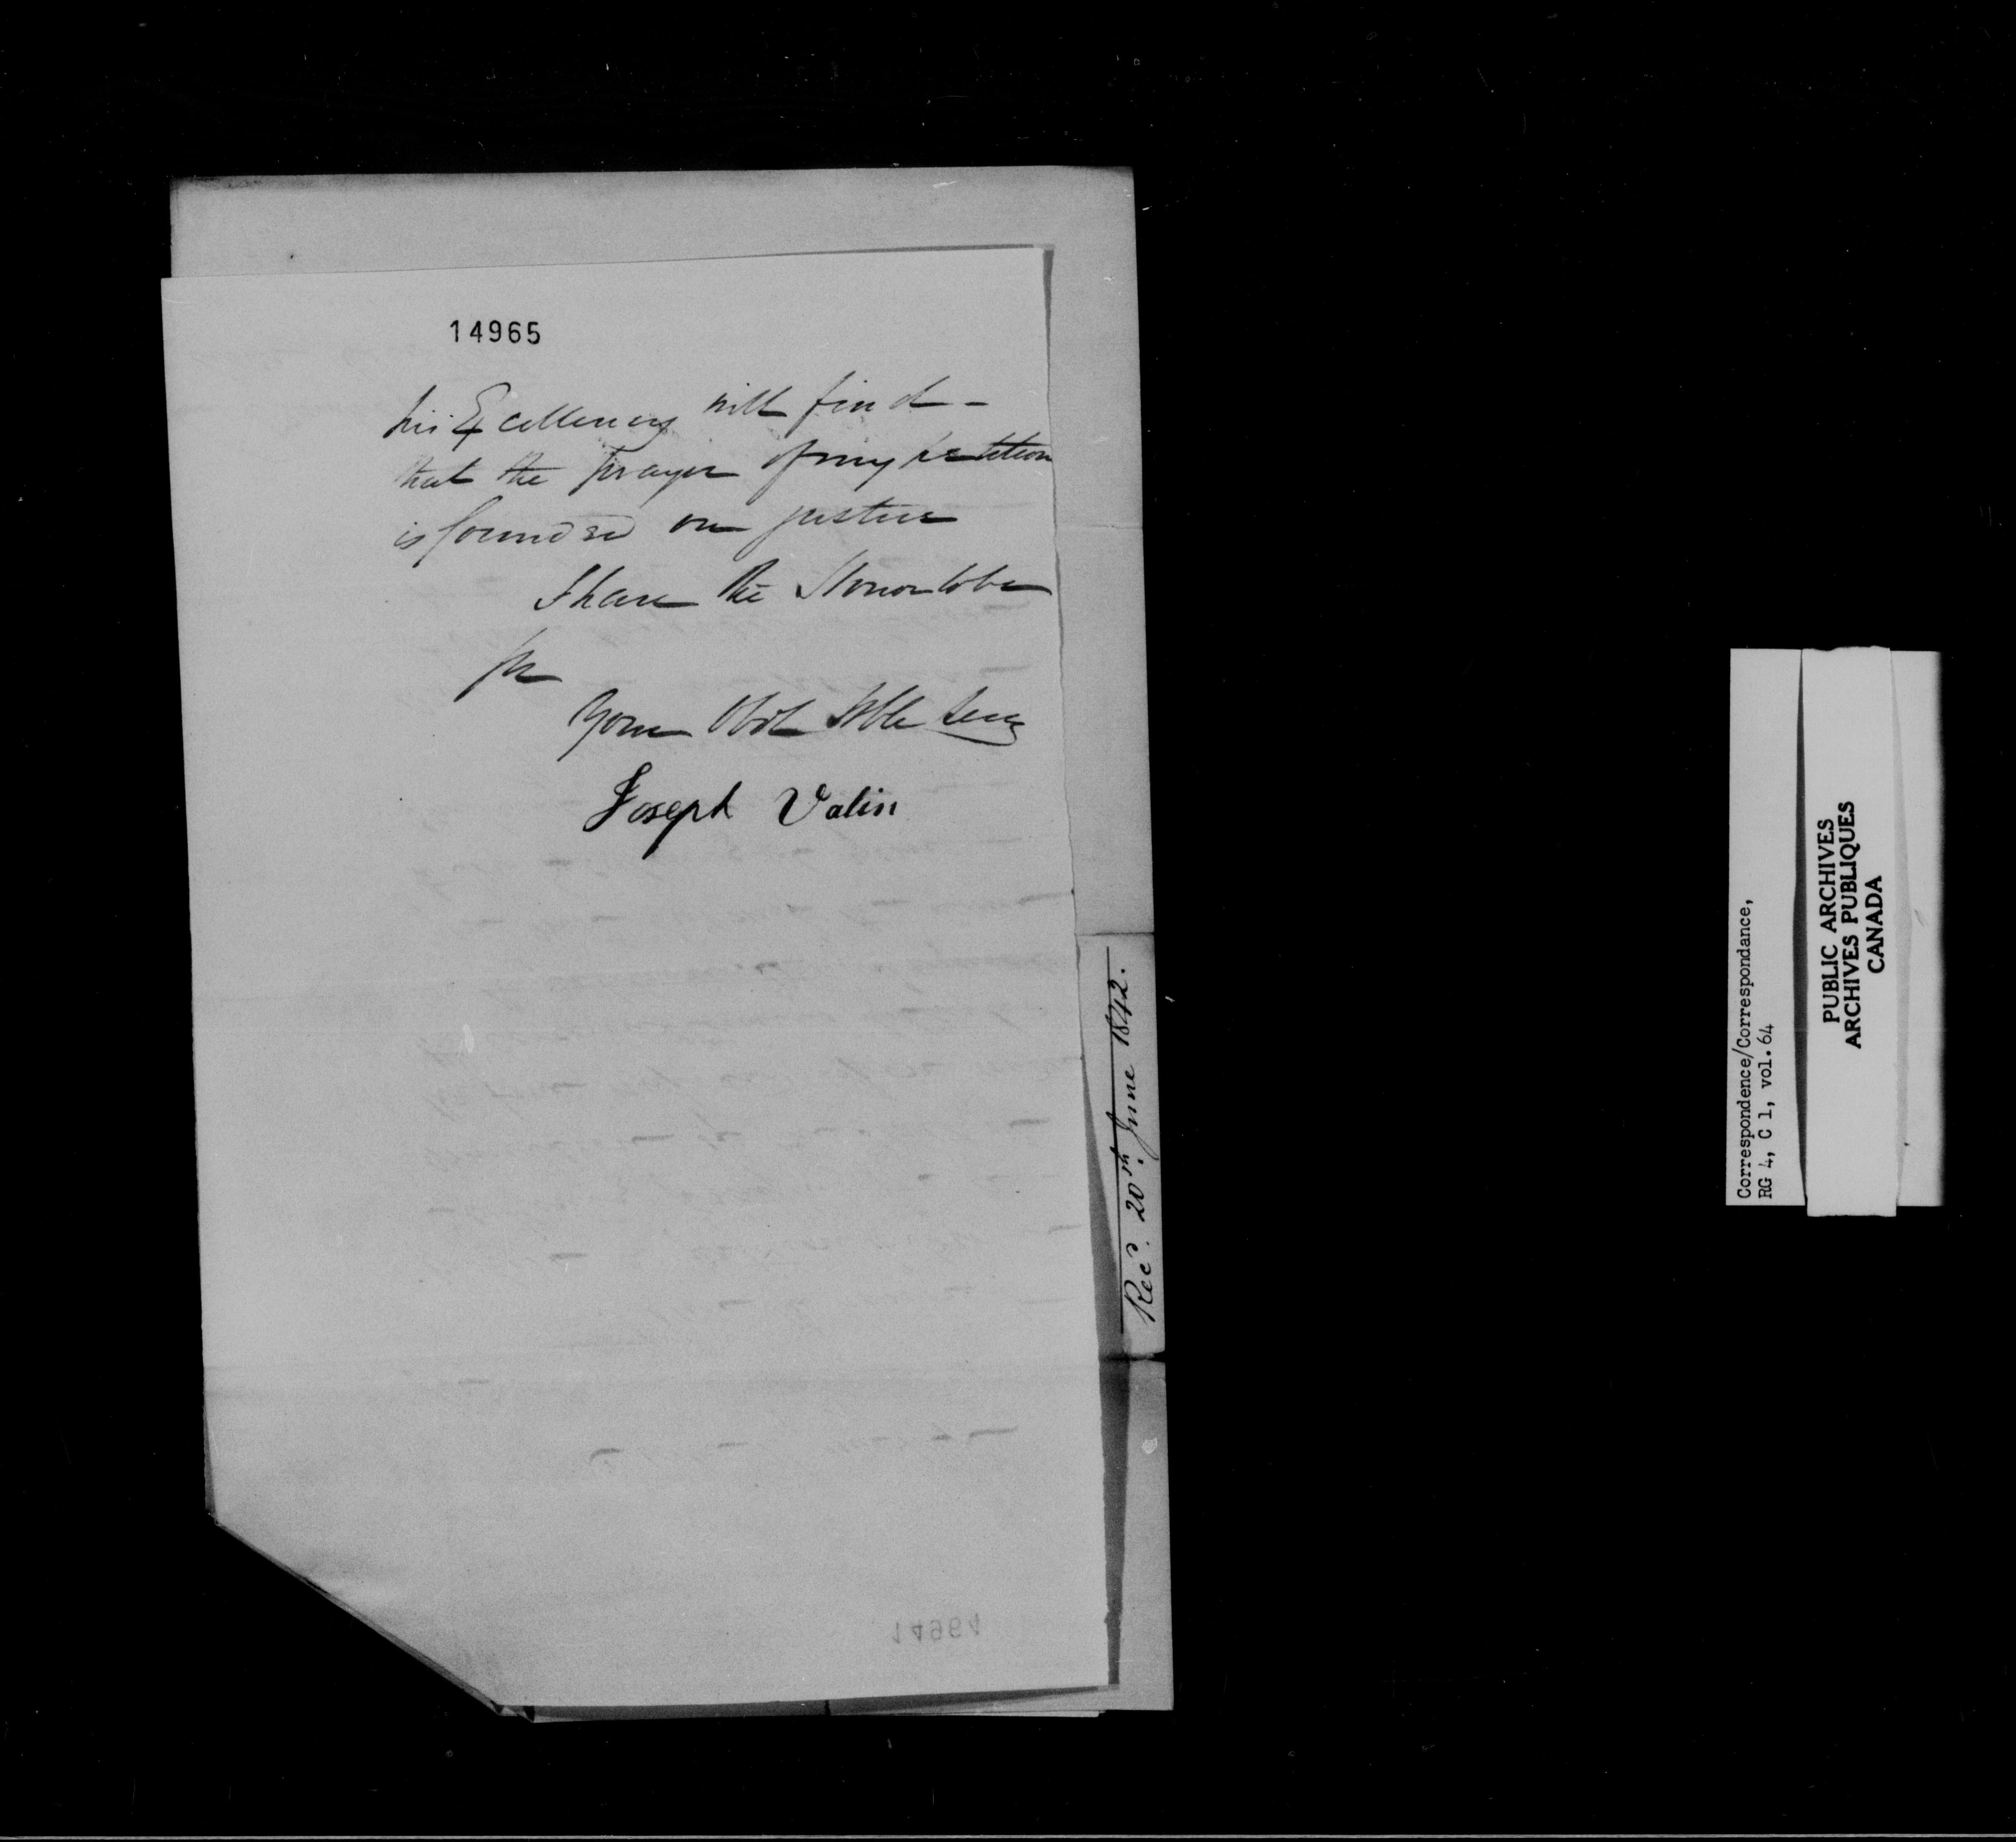 14965
his Excellency will find -
that the prayer of my petition
is founded on justice
I have the Honor to be
Sir
Your Obdt Hble Serv
Joseph Valin
Recd. 20th June 1842.
14964
Correspondence/Correspondance,
RG 4, C 1, vol. 64
PUBLIC ARCHIVES
ARCHIVES PUBLIQUES
CANADA